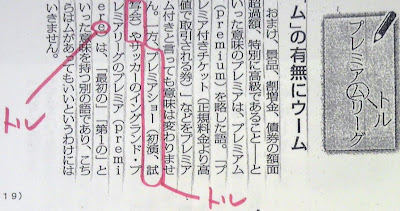 プレミアムリーグ
トル
ム」の有無にウーム
おまけ、景品、割増金、債券の額面
超過額、特別に高級であること――と
いった意味のプレミアは、プレミアム
(premium)を略した語。「プ
レミア付きチケット(正規料金より高
値で取引される券)」などをプレミア
ム付きと言っても意味は変わりませ
ん。一方、プレミアショー(初演、試
写会)やサッカーのイングランド・プ
レミアリーグのプレミア(premi
ere)は、「最初の」「第1の」と
いった意味を持つ別の語であり、こち
らはムがあってもいいというわけには
いきません。
トル
トル
19)